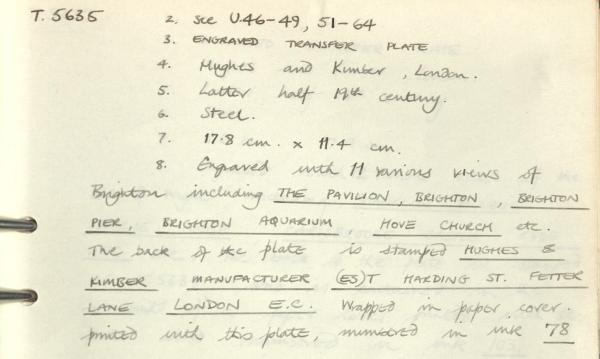 T. 5635 2. see U.46-49, 51-64
3. ENGRAVED TRANSFER PLATE
4. Hughes and Kimber, London.
5. Latter half 19th century.
6. Steel.
7. 17.8 cm. x 11.4 cm.
8. Engraved with 11 various views of
Brighton including THE PAVILION, BRIGHTON, BRIGHTON
PIER, BRIGHTON AQUARIUM HOVE CHURCH etc.
The back of the plate is stamped HUGHES &
KIMBER MANUFACTURER (ES)T HARDING ST. FETTER
LANE LONDON E.C. Wrapped in paper cover.
printed with this plate, numbered in ink 78